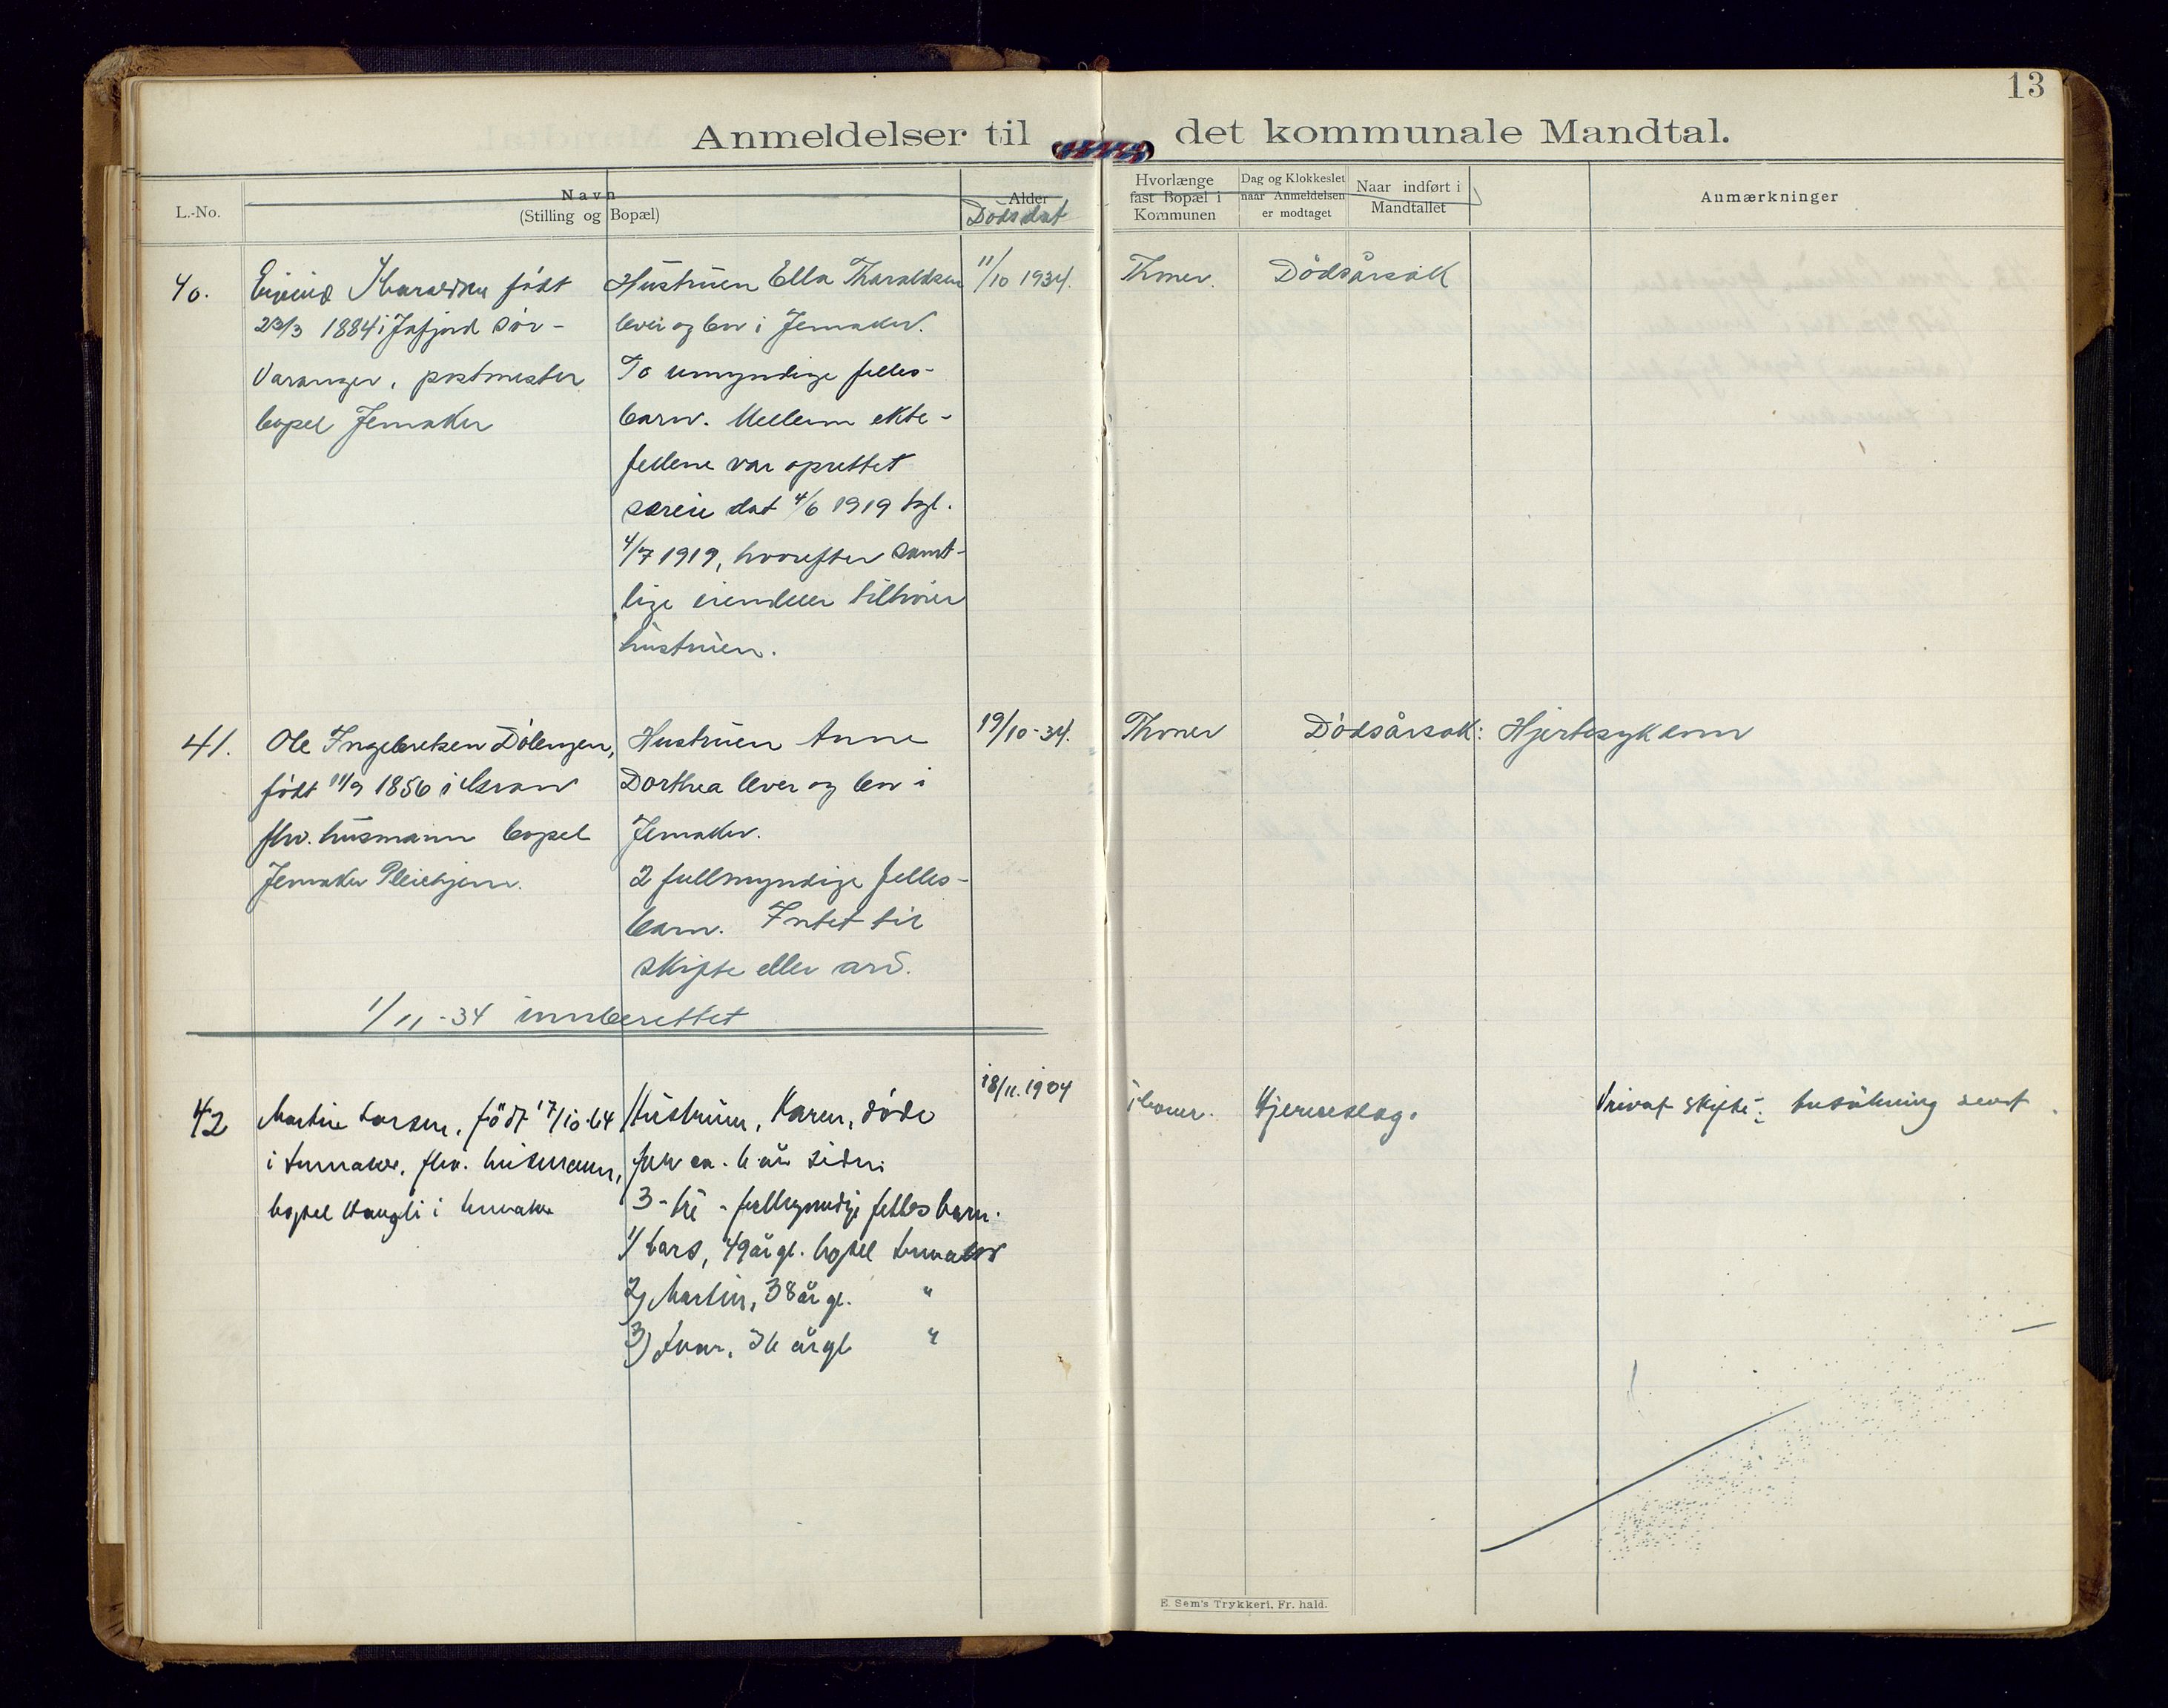 13
Anmeldelser til det kommunale Mandtal.
L.-No.
Navn
(Stilling og Bopæl)
Alder
Dödsdat
Hvorlænge
fast Bopæl i
Kommunen
Dag og Klokkeslet
naar Anmeldelsen
er modtaget
Naar indført i
Mandtallet
Anmærkninger
40.
Eivind Tharaldsen födt
23/3 1884 i Jafjord Sör-
Varanger, postmester
bopel Jevnaker
Hustruen Ella Tharaldsen
lever og bor i Jevnaker.
To umyndige felles-
barn. Mellem ekte-
fellene var oprettet
særeie dat 4/6 1919 tgl.
4/7 1919, hvorefter samt-
lige eiendeler tilhörer
hustruen.
11/10 1934.
Thoner.
Dödsårsak
41.
Ole Ingebretsen Dölengen,
födt 11/9 1856 i Gran
fhv. husmann bopel
Jevnaker Pleiehjem.
Hustruen Anne
Dorthea lever og bor i
Jevnaker.
2 fullmyndige felles-
barn. Intet til
skifte eller arv.
19/10-34.
Thoner
Dödsårsak: Hjertesykdom
1/11-34 innberettet
42
Martin Larsen, födt 17/10-64
i Jevnaker, fhv. husmann,
bopel Haugli i Jevnaker
Hustruen, Karen, döde
for ca. 6 år siden
3-tre-fullmyndige felles barn.
1/ Lars, 49 år gl. bopel Jevnaker
2) Martin, 38 år gl. "
3) Ivar, 36 år gl "
18/11.1934
Thoner.
Hjerneslag.
Privat skifte: